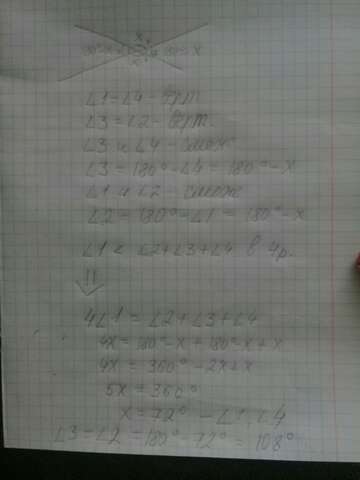 x
∠1=∠4 - верт.
∠3=∠2 - верт.
∠3 и ∠4 - смеж
∠3 = 180° - ∠4 = 180° - x
∠1 и ∠2 - смеж
∠2 = 180° - ∠1 = 180° - x
∠1 < ∠2+∠3+∠4 в 4р.
⇓
4∠1 = ∠2+∠3+∠4
4x = 180° - x + 180° - x + x
4x = 360° - 2x + x
5x = 360°
x = 72° - ∠1, ∠4
∠3 = ∠2 = 180° - 72° = 108°